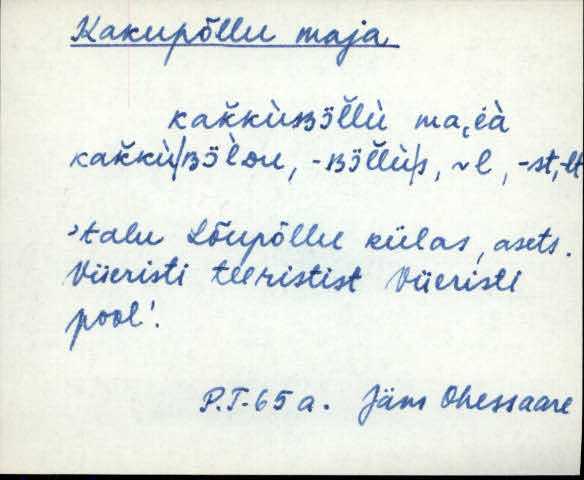 Kakupõllu maja
kak̆kùʙɜ̆l̆lù ma,i̯à
kak̆kù/ʙɜ̆lᴅu, -ʙɜ̆l̆lù/s, ~l, -st, -lt
'talu Lõupõllu külas, asets.
Viieristi teeristist Viieristi
pool'.
P.T-65 a. Jäm Ohessaare